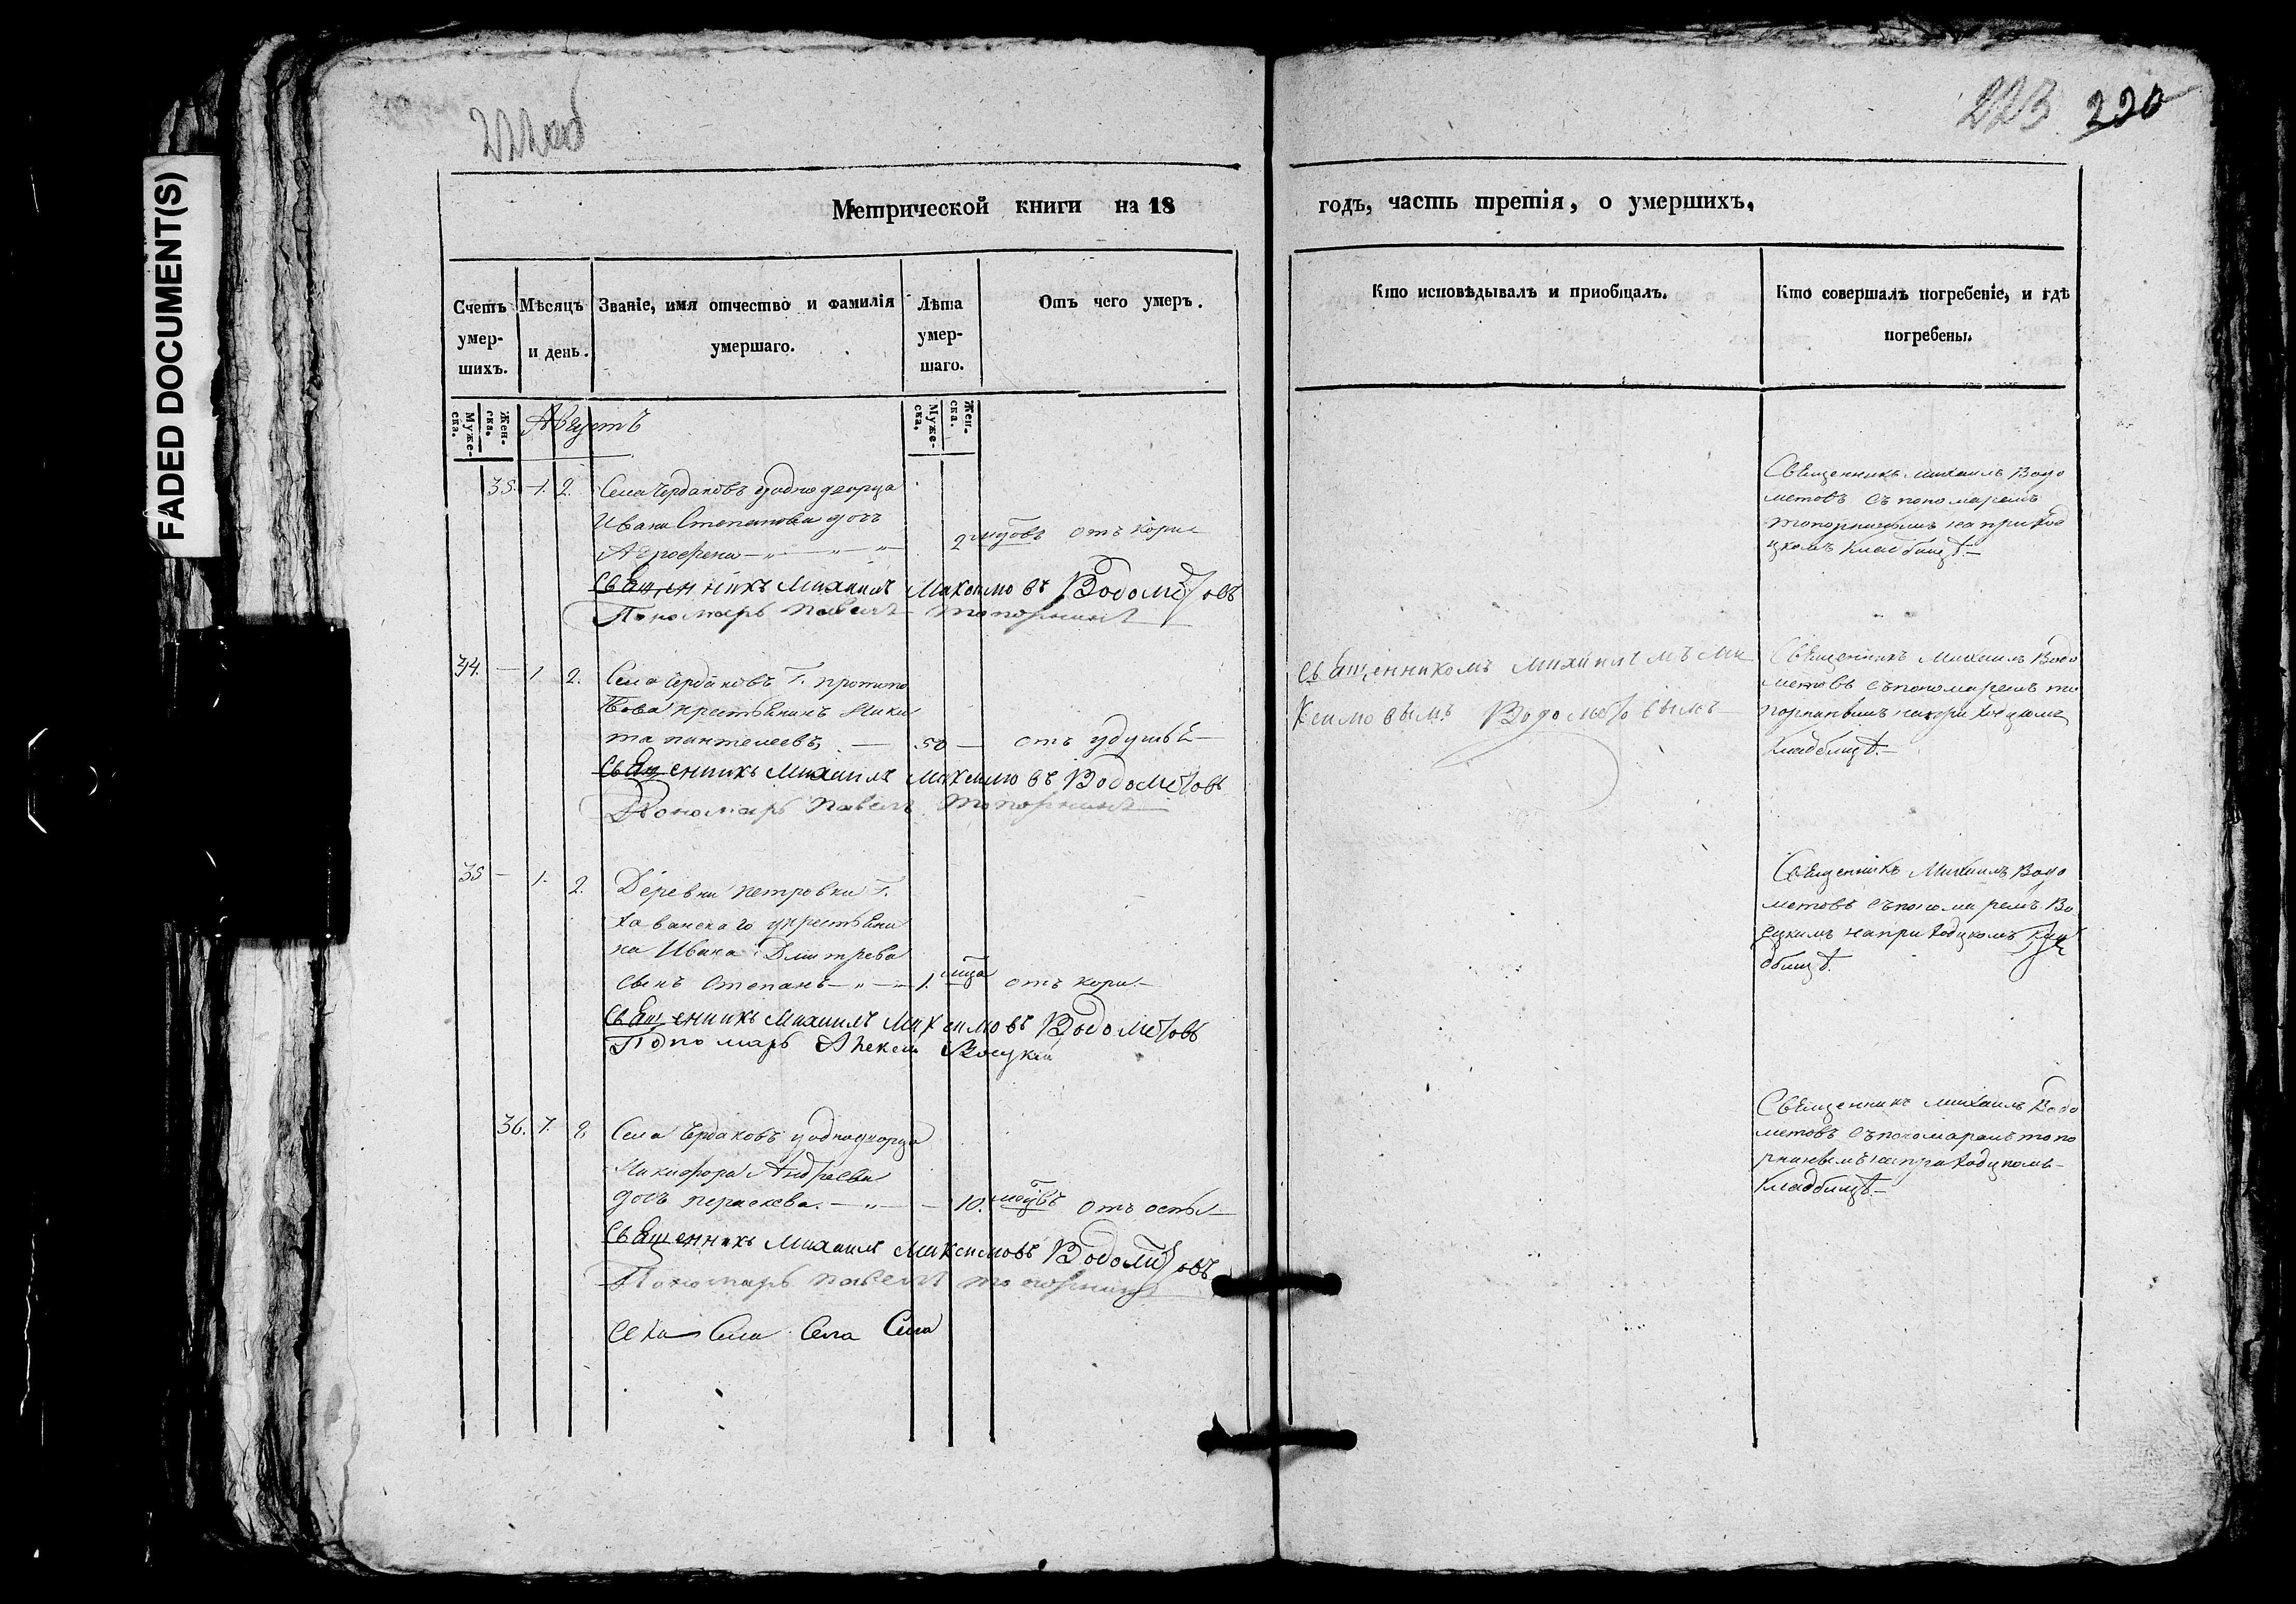 FADED DOCUMENT(S)
222об
223 220
Метрической книги на 18
годъ, часть третія, о умершихъ.
Счетъ умер-шихъ.
Мѣсяцъ и день.
Званіе, имя отчество и фамилія умершаго.
Лѣта умер-шаго.
Отъ чего умеръ.
Кто исповѣдывалъ и приобщалъ.
Кто совершалъ погребеніе, и гдѣ погребены.
Муже-ска. Жен-ска.
Августъ
Муже-ска, Жен-ска.
35. 1. 2. Села Чердаковъ уоднодворца
Ивана Степанова дочь
Агрофена 2 мцовъ отъ кори
Священникъ Михаилъ Максимовъ Водометовъ
Пономарь Павелъ Топорнинъ
Священникъ Михаилъ Водо
метовъ съ пономаремъ
топорнинымъ на приход
цкомъ кладбищѣ.
34. — 1 2. Села Чердаковъ Г. протопо
пова крестьянинъ Ники
та пантелеевъ — 50 — отъ удушья
Священникъ Михаилъ Максимовъ Водометовъ
Пономарь Павелъ Топорнинъ
Священникомъ Михаиломъ Ма
ксимовымъ Водометовымъ
Священникъ Михаилъ Водо
метовъ съпономаремъ то
порнинымъ наприходцкомъ
кладбищѣ.
35 — 1. 2. Деревни петровки Г.
Хаванскаго укрестьяни
на Ивана Дмитрева
сынъ Степанъ 1. мца отъ кори
Священникъ Михаилъ Максимовъ Водометовъ
Пономарь Алексей
Священникъ Михаилъ Водо
метовъ съпономаремъ
наприходцкомъ кла
дбищѣ.
36. 7. 8 Села Чердаковъ уоднодворца
Никифора Андреева
дочь параскева. 10. мцовъ отъ оспы
Священникъ Михаилъ Максимовъ Водометовъ
Пономарь Павелъ Топорнинъ
Священникъ Михаилъ Водо
метовъ съпономаремъ топо
рнинымъ наприходцкомъ
кладбищѣ.
Села Села Села